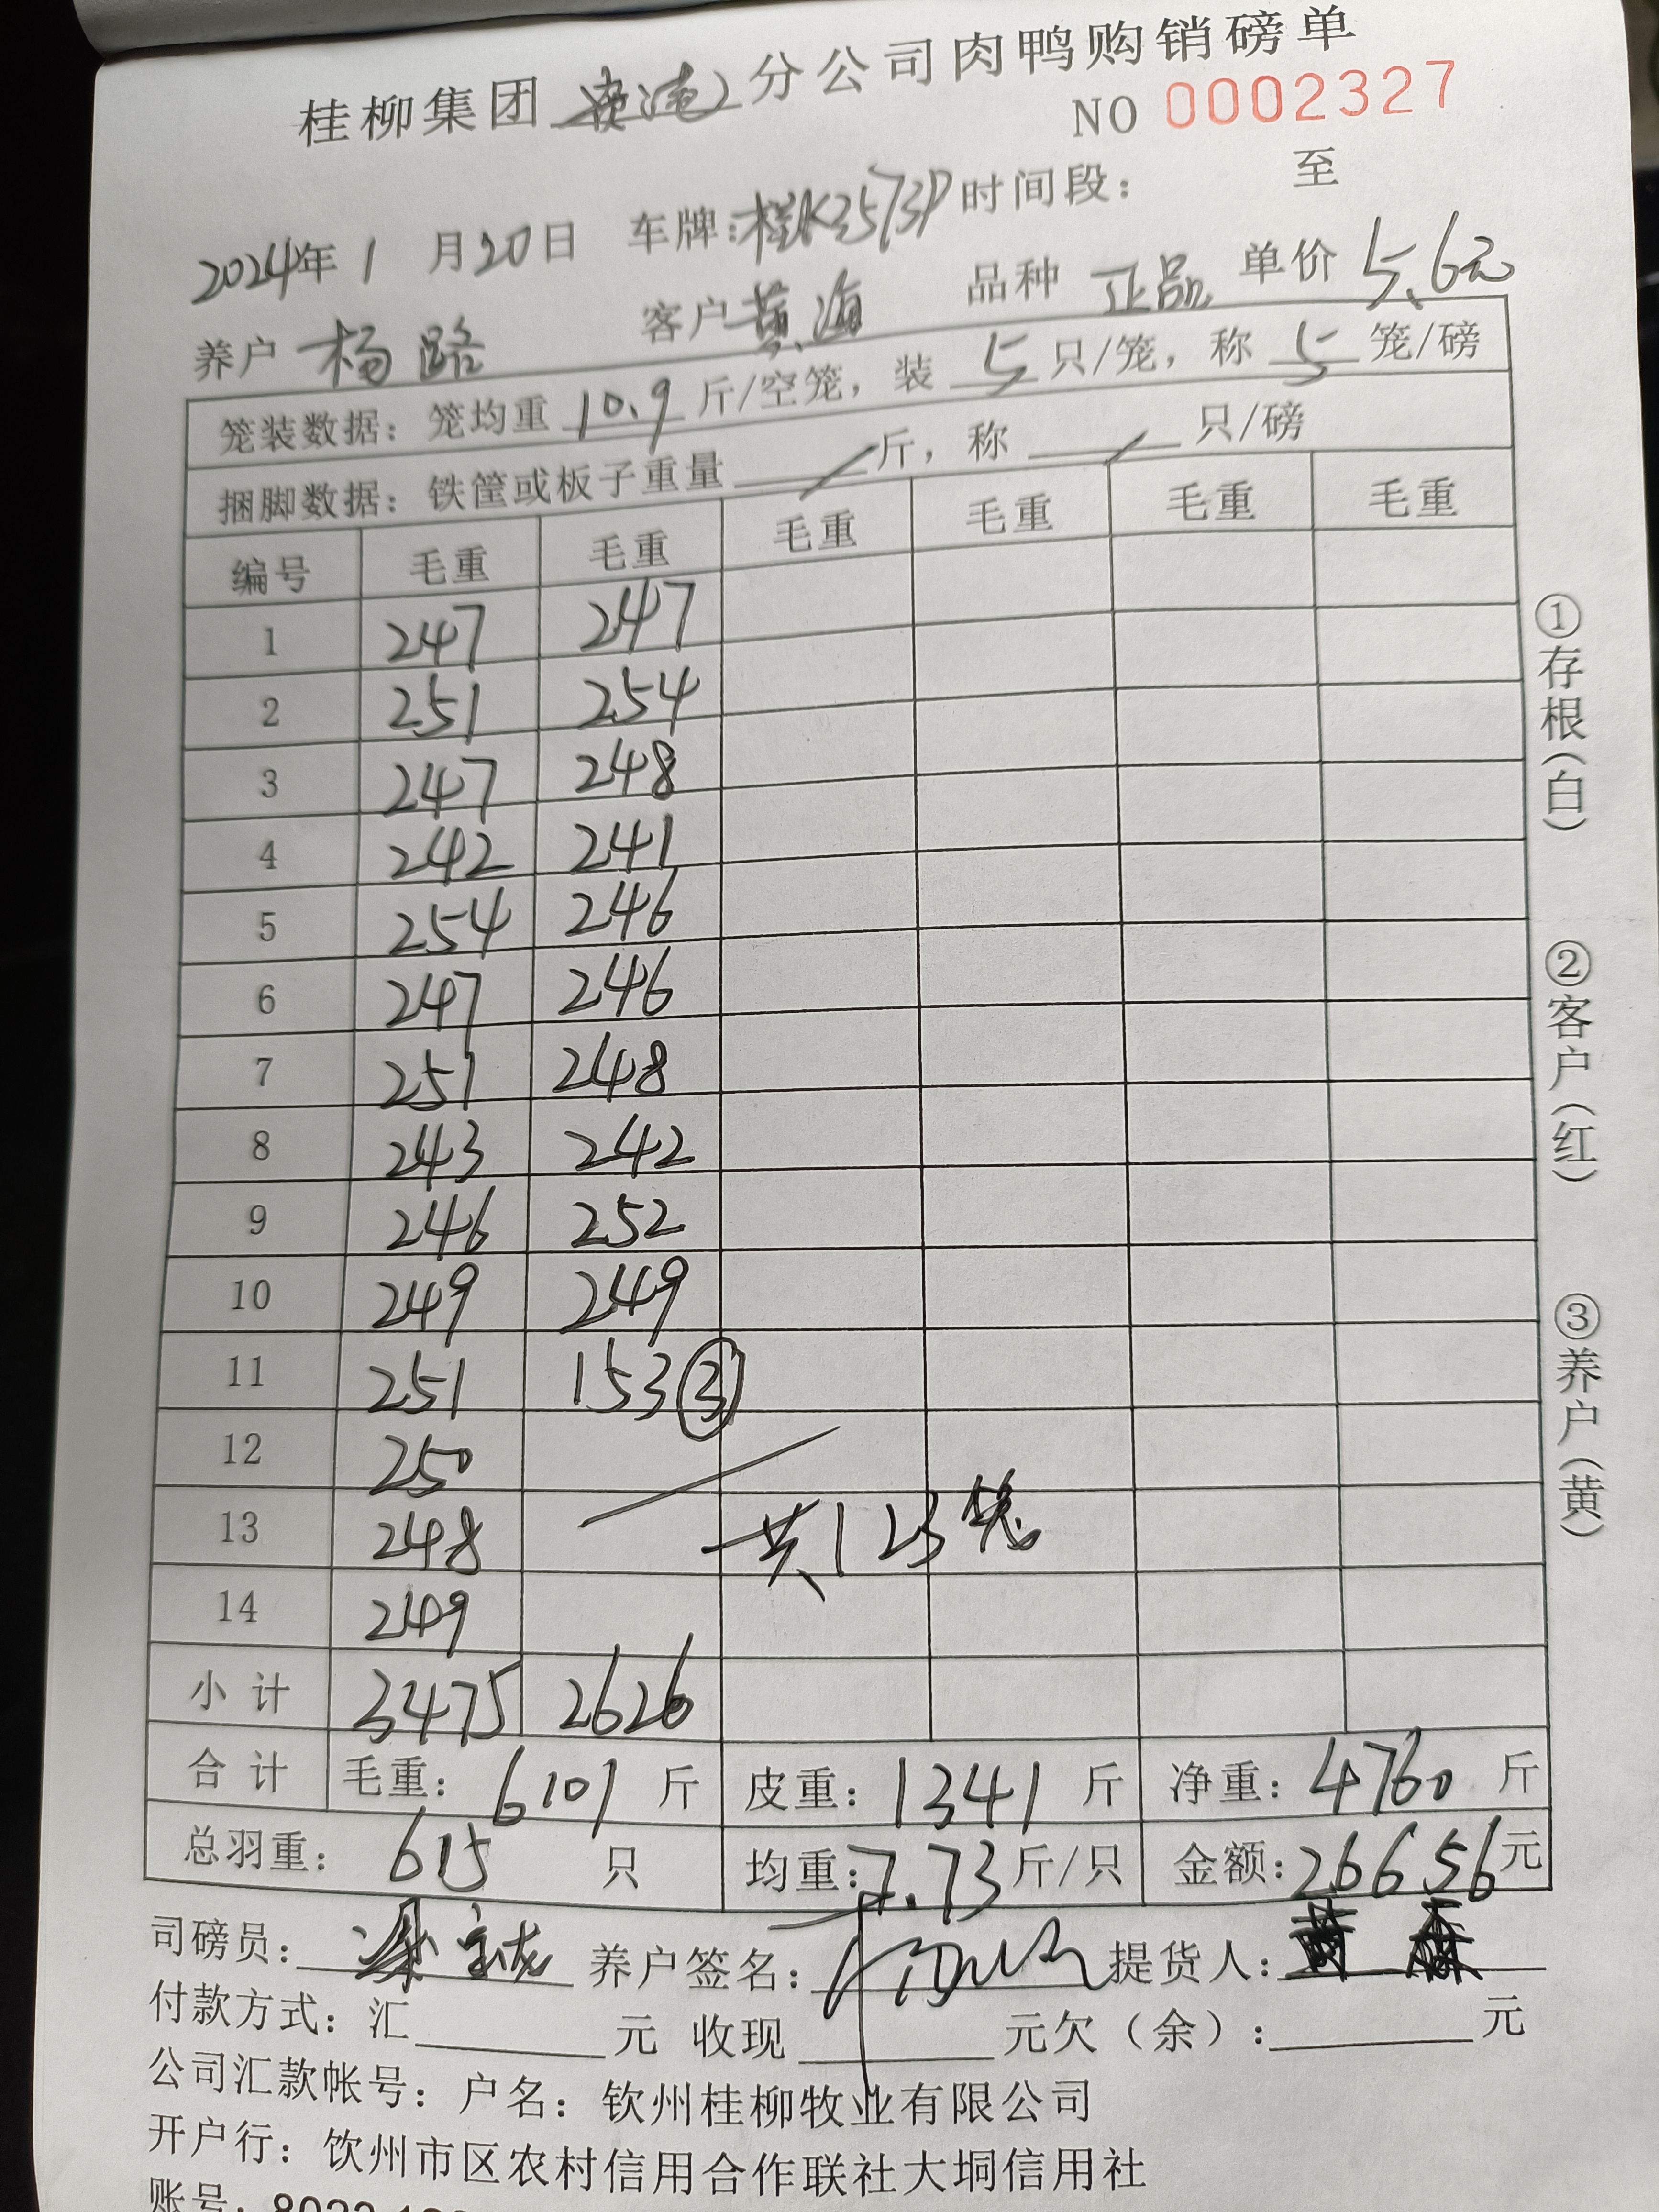 桂柳集团 分公司肉鸭购销磅单
NO 0002327
2024年 1 月 20 日 车牌:桂K2573P 时间段: 至
养户 杨路 客户 黄海 品种 正品 单价 5.6元
笼装数据: 笼均重 10.9 斤/空笼, 装 5 只/笼, 称 5 笼/磅
捆脚数据: 铁筐或板子重量 / 斤, 称 / 只/磅
编号 毛重 毛重 毛重 毛重 毛重 毛重
1 247 247
2 251 254
3 247 248
4 242 241
5 254 246
6 247 246
7 251 248
8 243 242
9 246 252
10 249 249
11 251 153 ③
12 250
13 248 共123笼
14 249
小计 3475 2626
合计 毛重: 6101 斤 皮重: 1341 斤 净重: 4760 斤
总羽重: 615 只 均重: 7.73 斤/只 金额: 26656 元
司磅员: 养户签名: 提货人:
付款方式: 汇 元 收现 元欠(余): 元
公司汇款帐号: 户名: 钦州桂柳牧业有限公司
开户行: 饮州市区农村信用合作联社大垌信用社
账号:
①存根(白)
②客户(红)
③养户(黄)